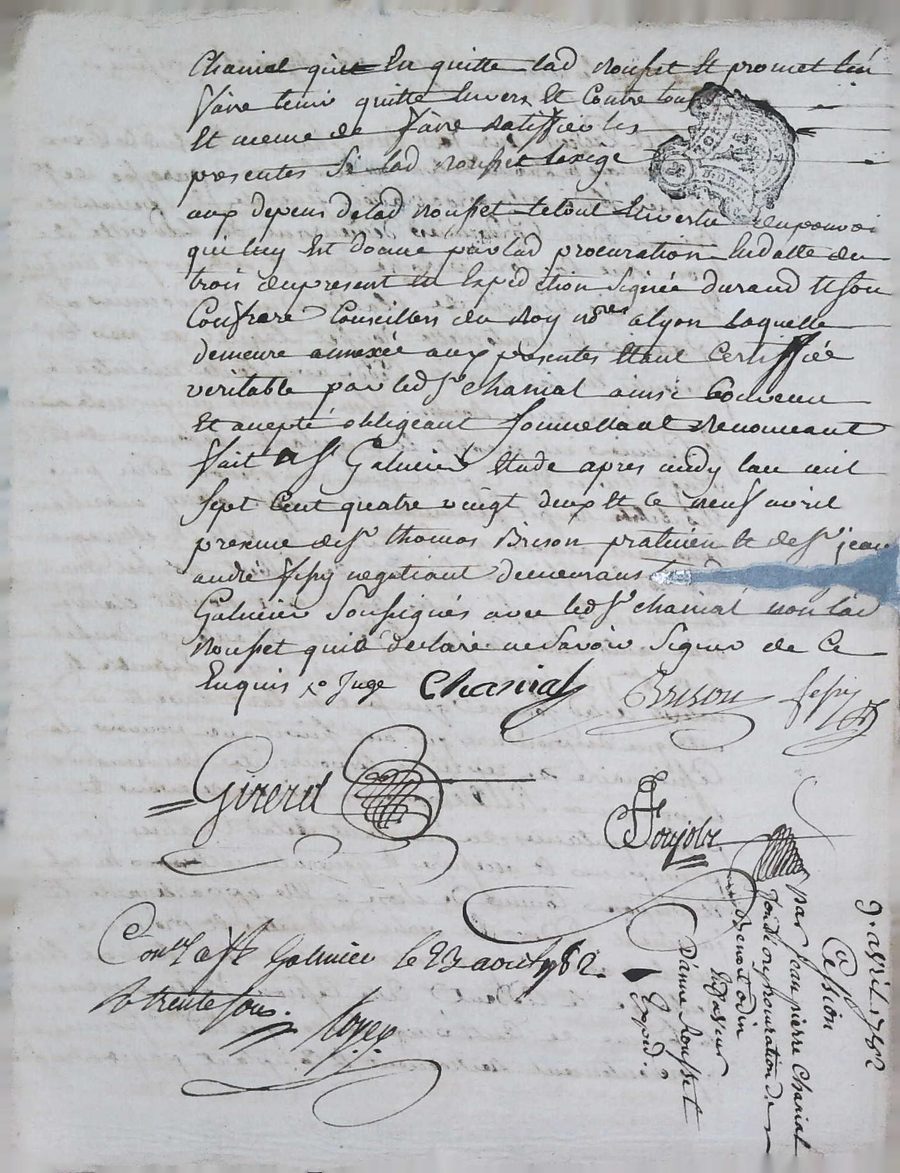 Chanial quil En quitte lad rousset Et promet l'en
faire tenir quitte Envers Et Contre tous
Et meme de faire Ratiffier les
presentes Si lad rousset Lexige
aux depens de lad rousset le tout En vertu du pouvoir
qui luy Est donné par lad procuration En datte du
trois du present En Expedition Signée durand Et Son
Confrere Conseillers du Roy nores a lyon Laquelle
demeure annexée aux presentes Etant Certiffiée
veritable par led Sr chanial ainsi Convenu
Et accepté obligeant Soumettant Renonceant
fait a St Galmier Etude apres midy l'an mil
Sept Cent quatre vingt deux Et le neuf avril
presence de Sr thomas Brison praticien Et de Sr jean
andré fessy negotiant demeurans
Galmier Soussignés avec led Sr chanial non lad
Rousset qui a declaré ne Savoir Signer de Ce
Enquis Juge Chanial Brison fessy
Girerd
Poujols
Con.lé a St Galmier le 23 avril 82.
R trente sous.
9 avril 1782
Cession
par jean pierre Chanial
fondé de procuration de
benoit odin
d'anné Rousset
Exped.